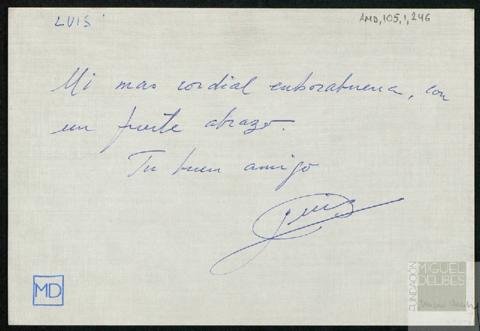 LUIS
AMD,105,1,246
Mi mas cordial enhorabuena, con
un fuerte abrazo.
Tu buen amigo
Luis
MD
FUNDACIÓN
MIGUEL
DELIBES